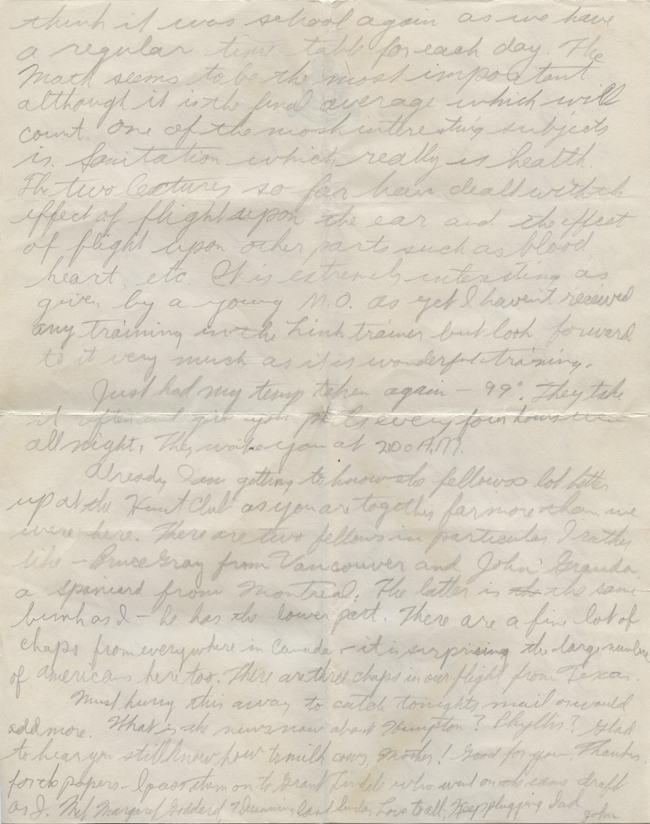 think it was school again as we have
a regular time table for each day. The
Math seems to be the most important
although it is the final average which will
count. One of the most interesting subjects
is Sanitation which really is health.
The two lectures so far have dealt with th
effect of flight upon the ear and the effect
of flight upon other parts such as blood
heart, etc. It is extremely interesting as
given by a young M.O. As yet I haven't received
any training in the Link trainer but look forward
to it very much as it is wonderful training.
Just had my temp taken again - 99°. They take
it often and give you pills every four hours even
all night. They wake you at 200 A.M.
Already I am getting to know the fellows a lot better
up at the Hunt Club as you are together far more than we
were here. There are two fellows in particular I rather
like - Bruce Gray from Vancouver and John Granda,
a spaniard from Montreal. The latter is the same
bunk as I - he has the lower part. There are a fine lot of
chaps from everywhere in Canada - it is surprising the large number
of Americans here too. There are three chaps in our flight from Texas.
Must hurry this away to catch tonights mail or would
add more. What is the news now about Hampton? Phyllis? Glad
to hear you still know how to milk cows, Mother! Good for you. Thanks
for the papers - I pass them on to Grant who went on the same draft
as I. Met Margaret Goddard, Love to all, Keep plugging Dad
John